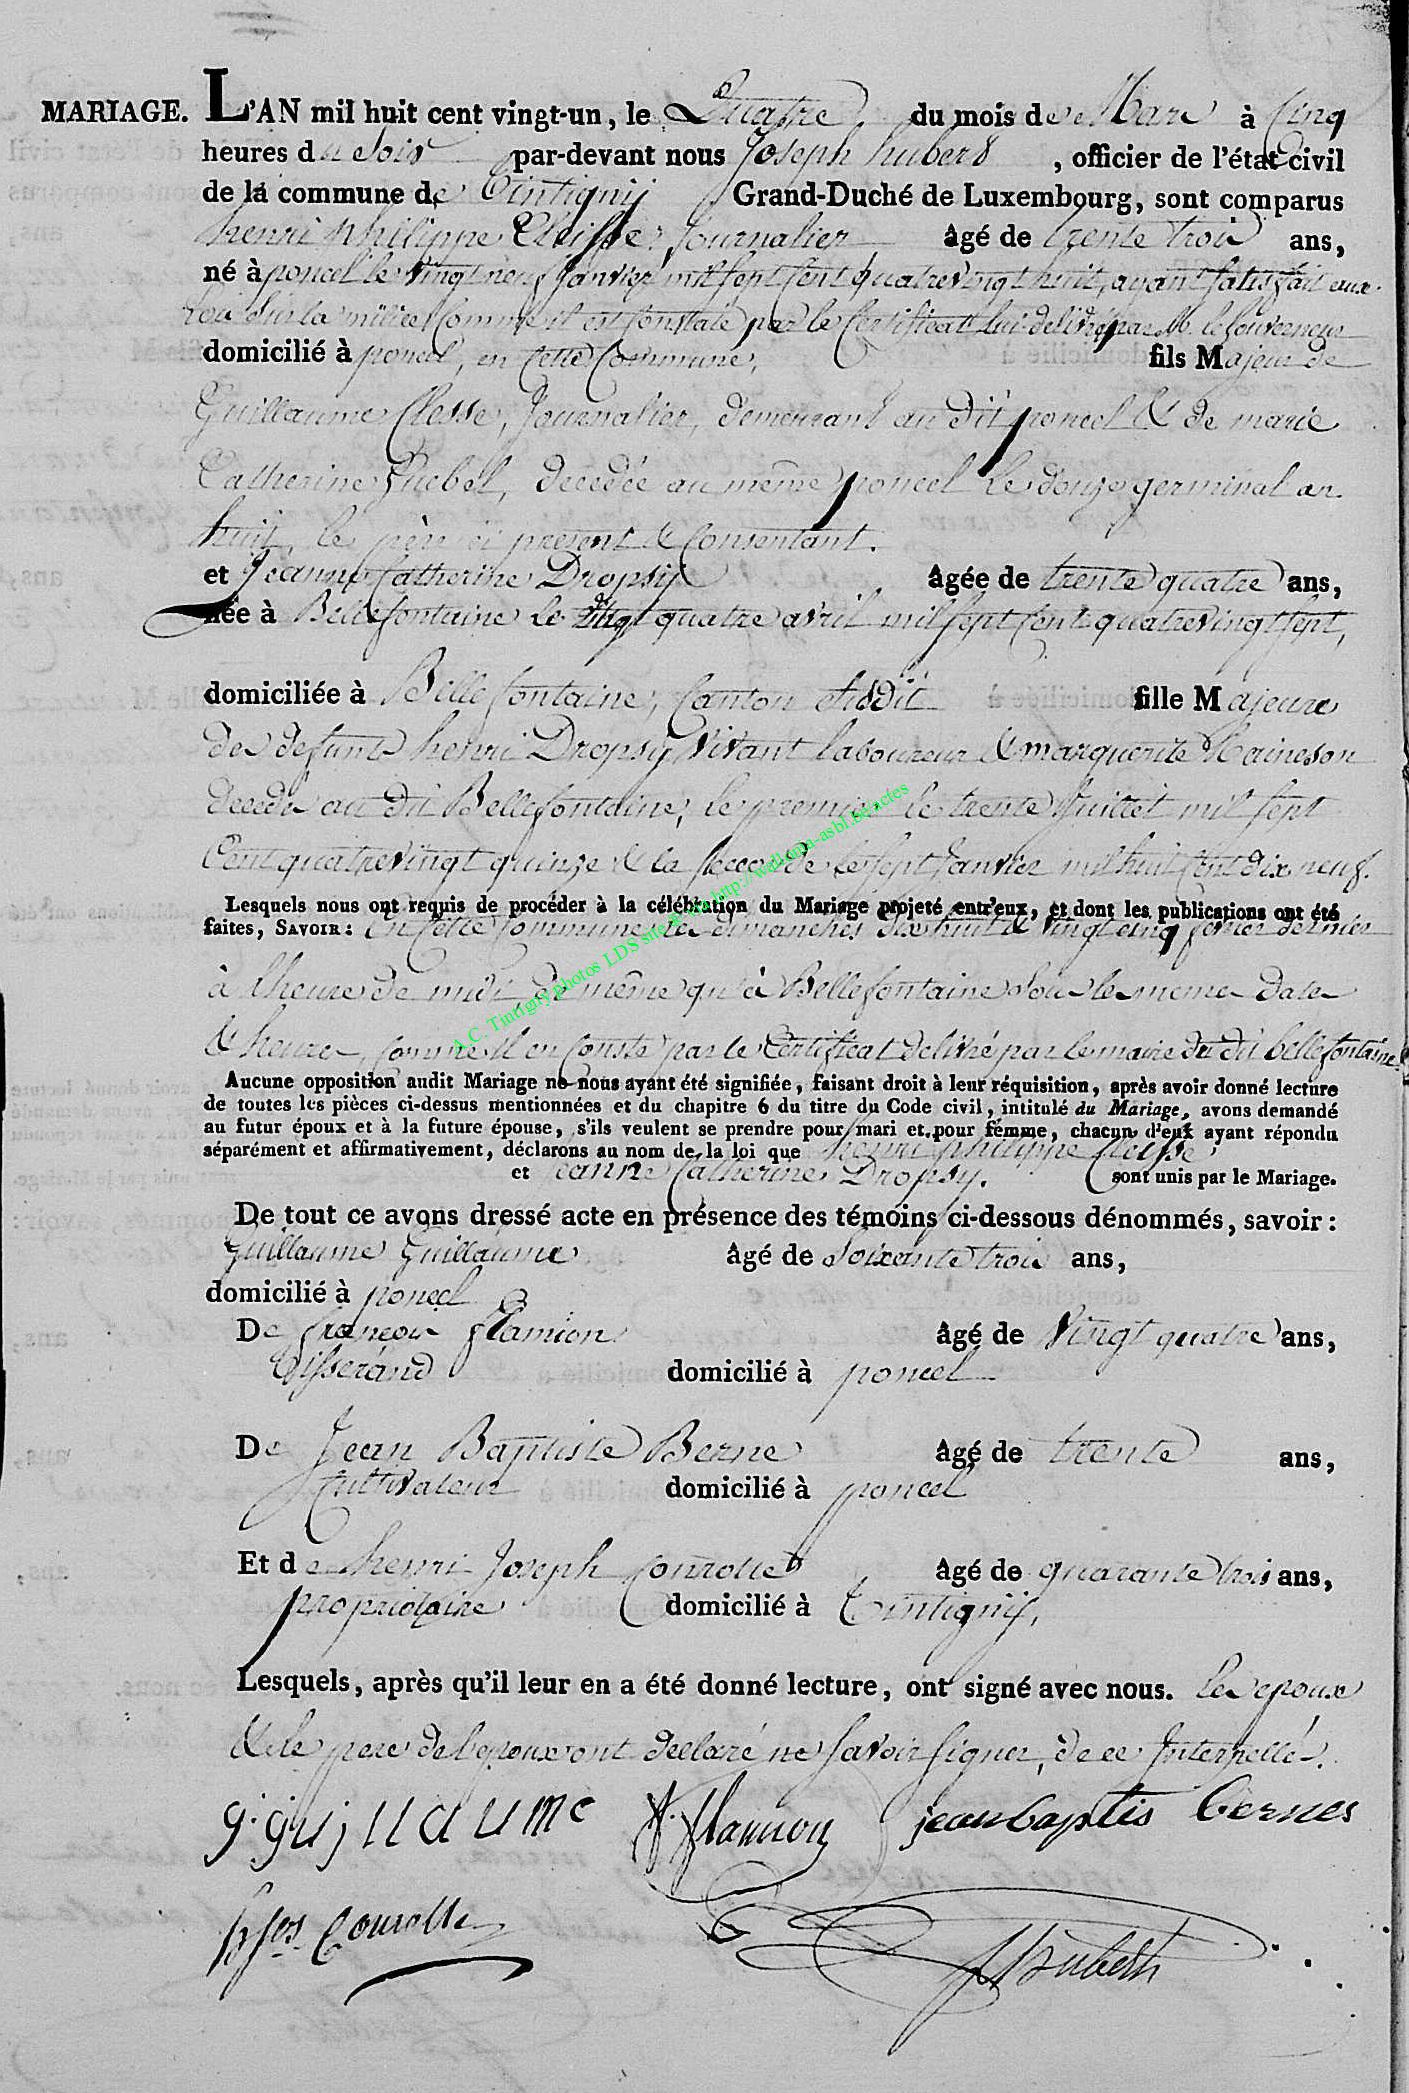 MARIAGE. L'AN mil huit cent vingt-un, le Quatre du mois de Mars à Cinq
heures du soir par-devant nous Joseph hubert, officier de l'état civil
de la commune de Tintigny Grand-Duché de Luxembourg, sont comparus
henri philippe Cleisse, Journalier âgé de trente trois ans,
né à poncel le vingt neuf Janvier mil sept Cent quatrevingt huit, ayant satisfait aux
Loix sur la milice Comme il est Constaté par le Certificat lui delivré par M. le Gouverneur
domicilié à poncel, en Cette Commune, fils Majeur de
Guillaume Clesse, Journalier, demeurant au dit poncel & de marie
Catherine Guebel, decedée au même poncel le douze germinal an
huit, le père ici present & Consentant.
et Jeanne Catherine Dropsy âgée de trente quatre ans,
née à Bellefontaine le quatre avril mil sept Cent quatrevingt sept,
domiciliée à Bellefontaine, Canton susdit fille Majeure
de defunts henri Dropsy vivant laboureur & marguerite
decedés au dit Bellefontaine, le premier le trente Juillet mil sept
Cent quatrevingt quinze & la seconde le sept Janvier mil huit Cent dix neuf.
Lesquels nous ont requis de procéder à la célébration du Mariage projeté entr'eux, et dont les publications ont été
faites, SAVOIR: En Cette Commune les dimanches dix huit & vingt cinq fevrier dernier
à l'heure de midi, de même qu'à Bellefontaine sous les mêmes dates
& heures, comme il en Conste par le Certificat delivré par le maire du dit bellefontaine.
Aucune opposition audit Mariage ne nous ayant été signifiée, faisant droit à leur réquisition, après avoir donné lecture
de toutes les pièces ci-dessus mentionnées et du chapitre 6 du titre du Code civil, intitulé du Mariage, avons demandé
au futur époux et à la future épouse, s'ils veulent se prendre pour mari et pour femme, chacun d'eux ayant répondu
séparément et affirmativement, déclarons au nom de la loi que henri philippe Cleisse
et Jeanne Catherine Dropsy. sont unis par le Mariage.
De tout ce avons dressé acte en présence des témoins ci-dessous dénommés, savoir:
Guillaume Guillaume âgé de Soixante trois ans,
domicilié à poncel
De françois flamion âgé de Vingt quatre ans,
Tisserand domicilié à poncel
De Jean Baptiste Berne âgé de trente ans,
Cultivateur domicilié à poncel
Et de henri Joseph Courolle âgé de quarante trois ans,
propriétaire domicilié à Tintigny,
Lesquels, après qu'il leur en a été donné lecture, ont signé avec nous. les epoux
& le pere de l'epoux ont declaré ne savoir signer, de ce Interpellés.
g. gujllaume f. flamion jean baptis Bernes
h jos Courolle J hubert
A.C. Tintigny photos LDS site & via http://wallonia-asbl.be/actes